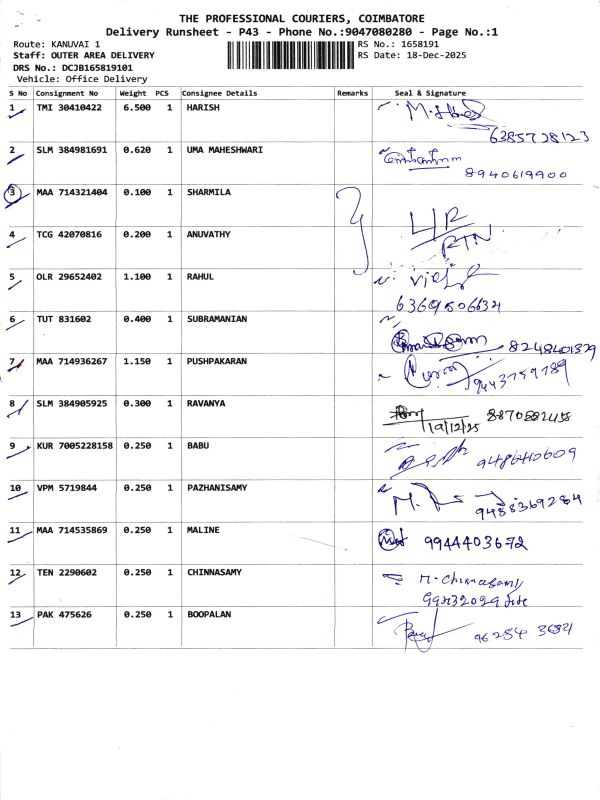 THE PROFESSIONAL COURIERS, COIMBATORE
Delivery Runsheet - P43 - Phone No.:9047080280 - Page No.:1
Route: KANUVAI 1 RS No.: 1658191
Staff: OUTER AREA DELIVERY RS Date: 18-Dec-2025
DRS No.: DCJB165819101
Vehicle: Office Delivery
S No Consignment No Weight PCS Consignee Details Remarks Seal & Signature
1 TMI 30410422 6.500 1 HARISH
6385728123
2 SLM 384981691 0.620 1 UMA MAHESHWARI
8940619900
3 MAA 714321404 0.100 1 SHARMILA
4 TCG 42070816 0.200 1 ANUVATHY
RTN
5 OLR 29652402 1.100 1 RAHUL
6369506634
6 TUT 831602 0.400 1 SUBRAMANIAN
8248401329
7 MAA 714936267 1.150 1 PUSHPAKARAN
9443759789
8 SLM 384905925 0.300 1 RAVANYA
19/12/25
9 KUR 7005228158 0.250 1 BABU
9486410609
10 VPM 5719844 0.250 1 PAZHANISAMY
9488369284
11 MAA 714535869 0.250 1 MALINE 9944403672
12 TEN 2290602 0.250 1 CHINNASAMY M. Chinnasamy
13 PAK 475626 0.250 1 BOOPALAN
96284 3684